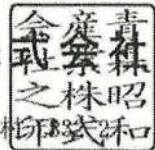 式会社
青森昭和
産業株式
会社之印